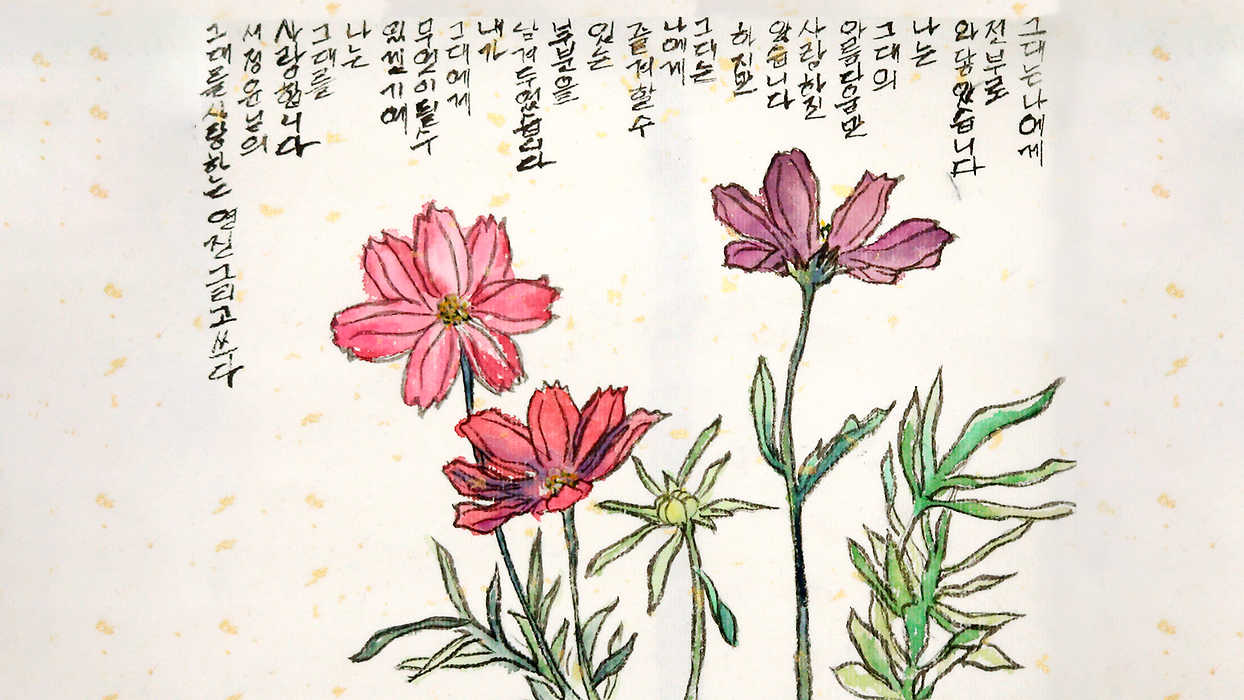 그대는나에게
전부로
와닿았습니다
나는
그대의
아름다움만
사랑하진
않습니다
하지만
그대는
나에게
즐겨할수
있는
부분을
남겨두었습니다
내가
그대에게
무엇이될수
있었기에
나는
그대를
사랑합니다
서정윤님의
그대를사랑하는 영진그리고쓰다